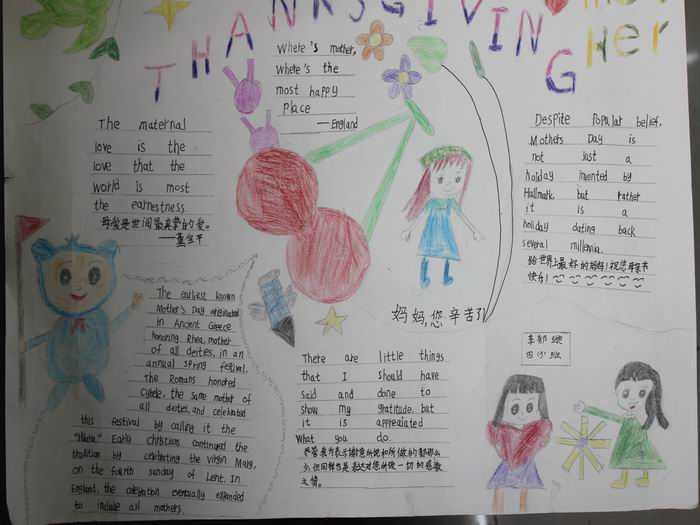 THANKSGIVING
Mother
Where's mother,
Where's the
most happy
place
—England
The maternal
love is the
love that the
world is most
the earnestness
母爱是世间最真挚的爱。
Despite Popular belief,
Mothers Day is
not just a
holiday invented by
Hallmark but rather
it is a
holiday dating back
several millennia.
给世界上最好的妈妈!祝您母亲节
快乐!
妈妈,您辛苦了!
The earliest known
Mother's Day originated
In Ancient Greece
honoring Rhea, mother
of all deities, in an
annual spring festival.
The Romans honored
Cybele, the same mother of
all deities, and celebrated
this festival by calling it the
"Hilaria." Early christians continued the
tradition by celebrating the virgin Mary,
on the fourth sunday of Lent. In
England, the celebration eventually expanded
to include all mothers.
There are little things
that I should have
said and done to
show my gratitude. but
it is appreaiated
What you do.